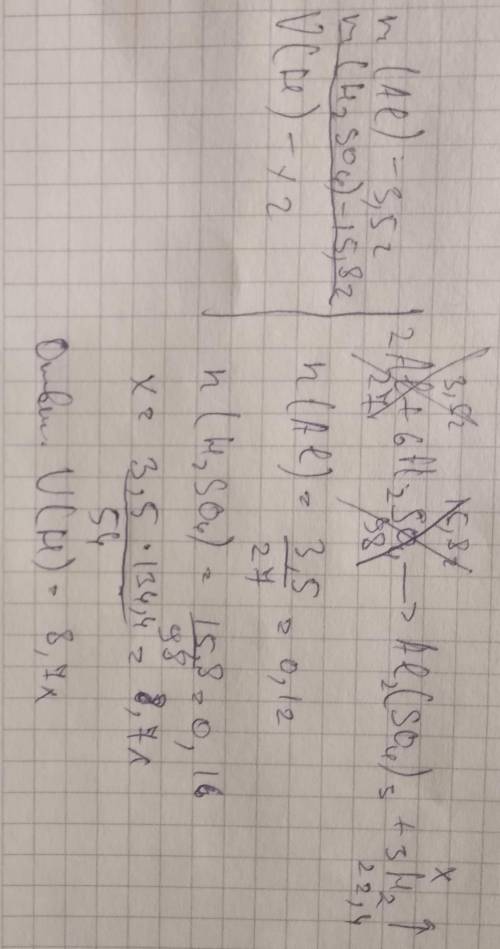 m(Al) – 3,5г
m(H₂SO₄) – 15,8г
V(H) – ?
3,5г 15,8г x
2Al + 6H₂SO₄ → Al₂(SO₄)₃ + 3H₂↑
27 98 22,4
n(Al) = 3,5/27 = 0,12
n(H₂SO₄) = 15,8/98 = 0,16
x = 3,5·134,4/54 = 8,7л
Ответ: V(H) = 8,7л